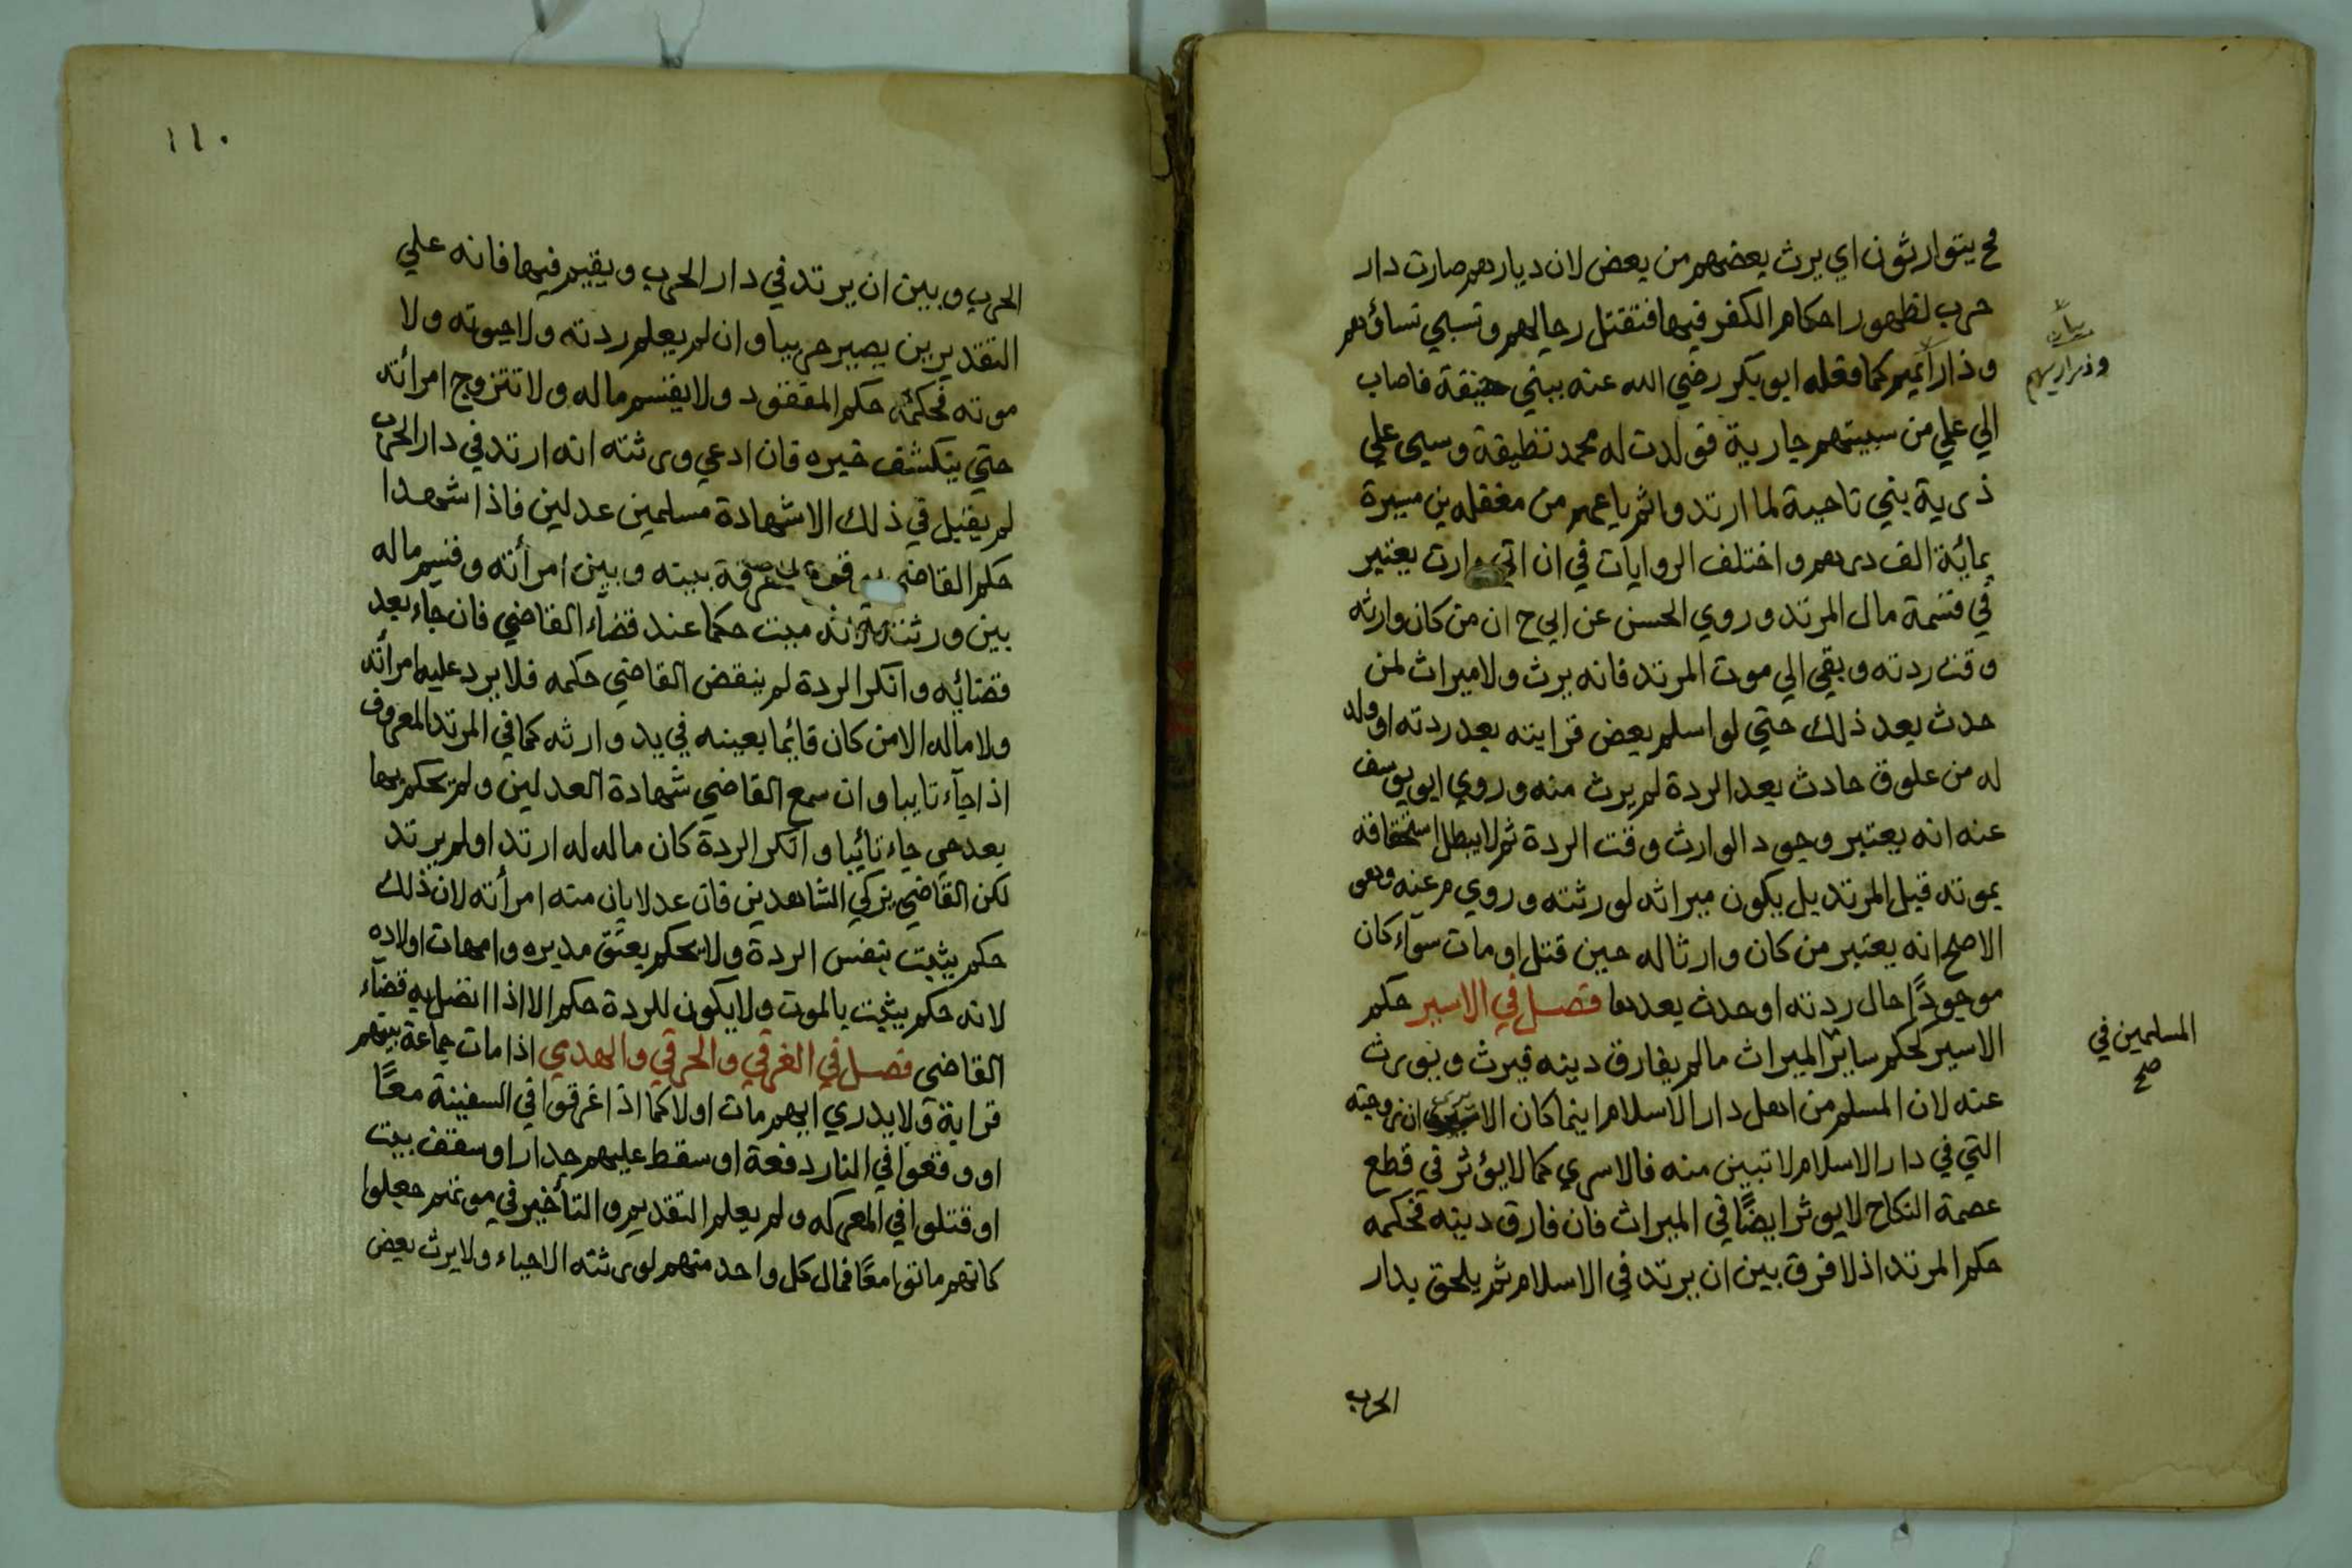 فح يتوارثون اي يرث بعضهم من بعض لان ديارهم صارت دار
حرب لظهور احكام الكفر فيها فتقتل رجالهم وتسبي نساؤهم
وذراريهم كما فعله ابو بكر رضي الله عنه ببني حنيفة فاصاب
وذراريهم
الي علي من سبيتهم جارية فولدت له محمد وسبي علي
ذرية بني ناجية لما ارتدوا ثم باعهم من مغفله بن ميسرة
بمائة الف درهم واختلف الروايات في ان اتي وارث يعتبر
في قسمة مال المرتد وروي الحسن عن ابي ح ان من كان وارثه
وقت ردته وبقي الي موت المرتد فانه يرث ولا ميراث لمن
حدث بعد ذلك حتي لو اسلم بعض قرابته بعد ردته او ولد
له من علوق حادث بعد الردة لم يرث منه وروي ابو يوسف
عنه انه يعتبر وجود الوارث وقت الردة ثم لا يبطل استحقاقه
بموته قبل المرتد بل يكون ميراثه لورثته وروي م عنه وهو
الاصح انه يعتبر من كان وارثا له حين قتل او مات سوآء كان
موجودًا حال ردته او حدث بعدها فصل في الاسير حكم
الاسير كحكم سائر الميراث ما لم يفارق دينه فيرث ويورث
المسلمين في
صح
عنه لان المسلم من اهل دار الاسلام اينما كان الا ان زوجته
التي في دار الاسلام لا تبين منه فالاسري كما لا يؤثر في قطع
عصمة النكاح لا يوثر ايضًا في الميراث فان فارق دينه فحكمه
حكم المرتد اذ لا فرق بين ان يرتد في الاسلام ثم يلحق بدار
الحرب
١١٠
الحرب وبين ان يرتد في دار الحرب ويقيم فيها فانه علي
التقديرين يصير حربيا وان لم يعلم ردته ولا حيوته ولا
موته فحكمه حكم المفقود ولا يقسم ماله ولا تتزوج امرأته
حتي ينكشف خبره فان ادعي ورثته انه ارتد في دار الحرب
لم يقبل في ذلك الا شهادة مسلمين عدلين فاذا شهدا
حكم القاضي بينه وبين امرأته وقسم ماله
بين ورثته لانه ميت حكما عند قضآء القاضي فان جاء بعد
قضائه وانكر الردة لم ينقض القاضي حكمه فلا يرد عليه امرأته
ولا ماله الا من كان قائما بعينه في يد وارثه كما في المرتد المعروف
اذا جآء تايبا وان سمع القاضي شهادة العدلين ولم يحكم بها
بعد حي جاء تائبا وانكر الردة كان ماله له ارتد او لم يرتد
لكن القاضي يزكي الشاهدين فان عدلا بان منه امرأته لان ذلك
حكم يثبت بنفس الردة ولا يحكم بعتق مدبره وامهات اولاده
لانه حكم يثبت بالموت ولا يكون للردة حكم الا اذا اتصل به قضآء
القاضي فصل في الغرقي والحرقي والهدي اذا مات جماعة بينهم
قرابة ولا يدري ايهم مات اولا كما اذا غرقوا في السفينة معًا
او وقعوا في النار دفعة او سقط عليهم جدار او سقف بيت
او قتلوا في المعركه ولم يعلم التقديم والتأخير في موتهم جعلوا
كانهم ماتوا معًا فمال كل واحد منهم لورثته الاحياء ولا يرث بعض